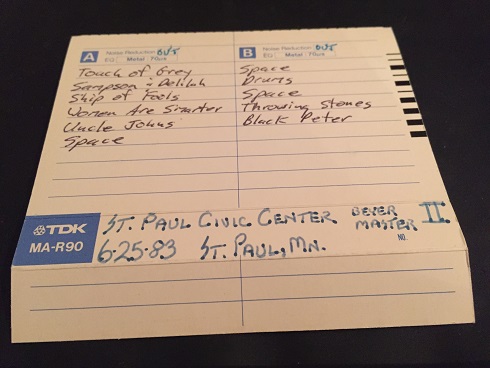 A Noise Reduction OUT
EQ Metal 70us
Touch of Grey
Sampson & Delilah
Ship of Fools
Women Are Smarter
Uncle Johns
Space
B Noise Reduction OUT
EQ Metal 70us
Space
Drums
Space
Throwing Stones
Black Peter
TDK
MA-R90
ST. PAUL CIVIC CENTER
6-25-83 ST. PAUL, MN.
BEYER
MASTER
NO.
II